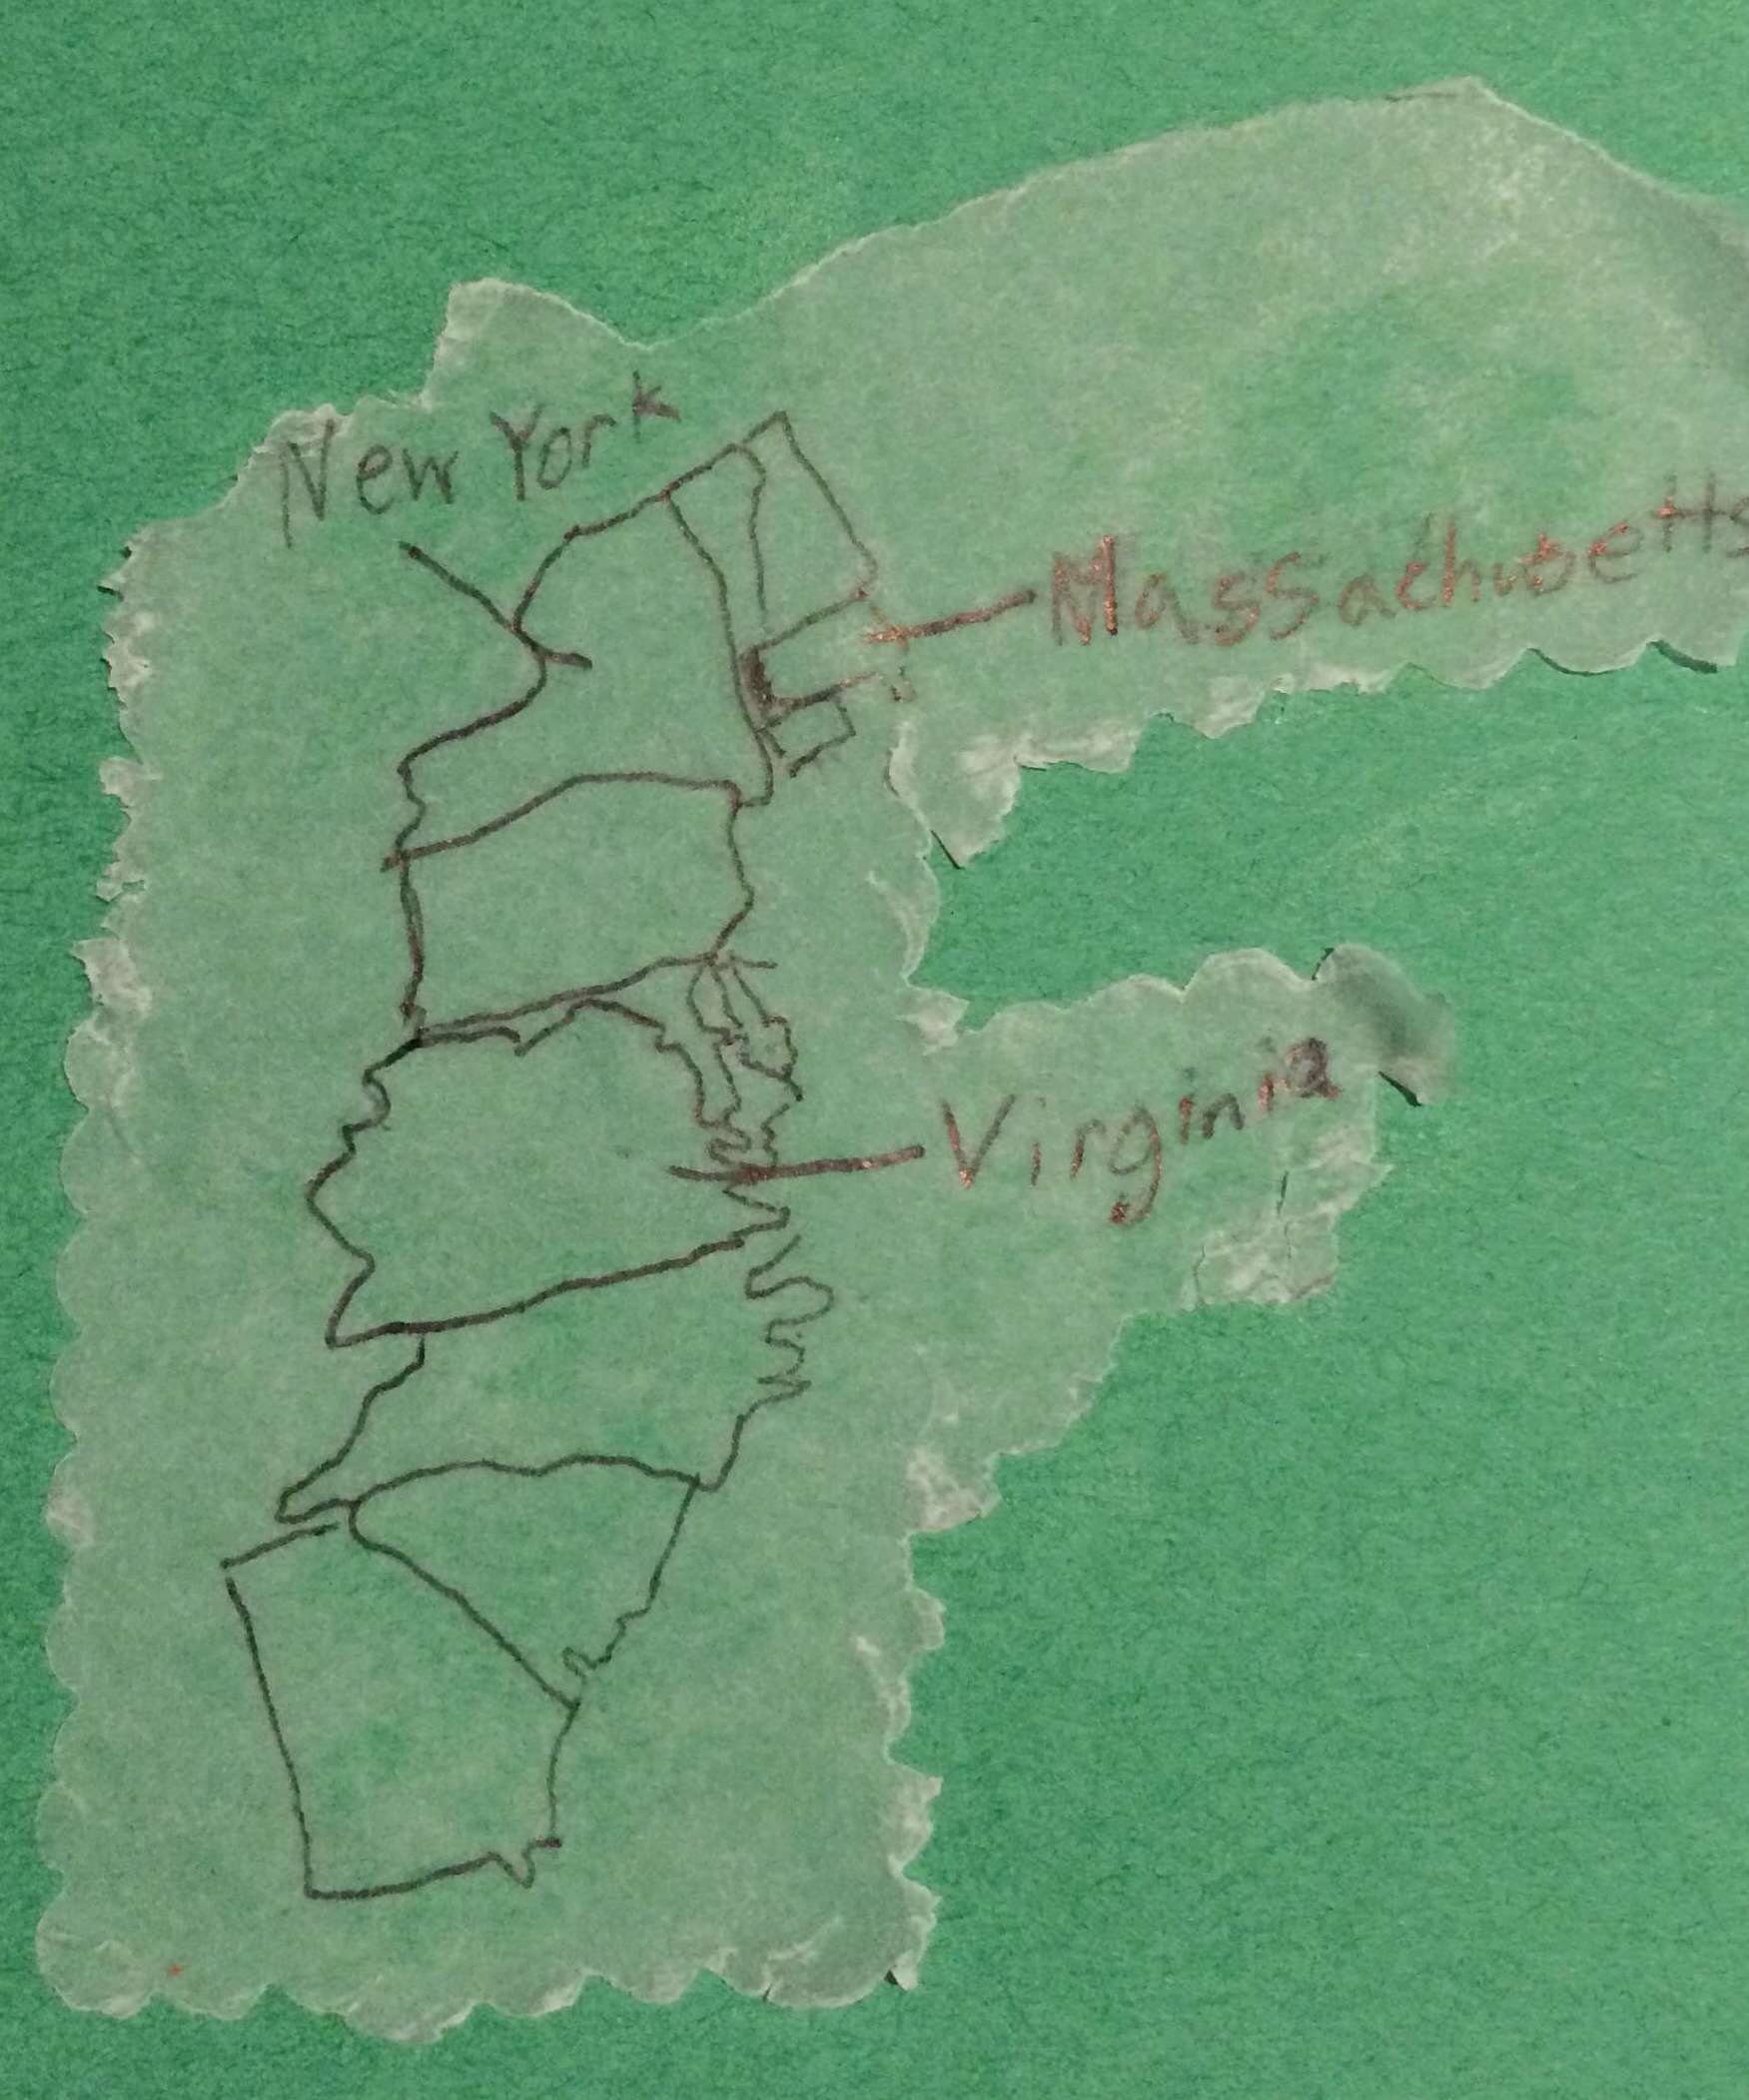 New York
Massachusetts
Virginia